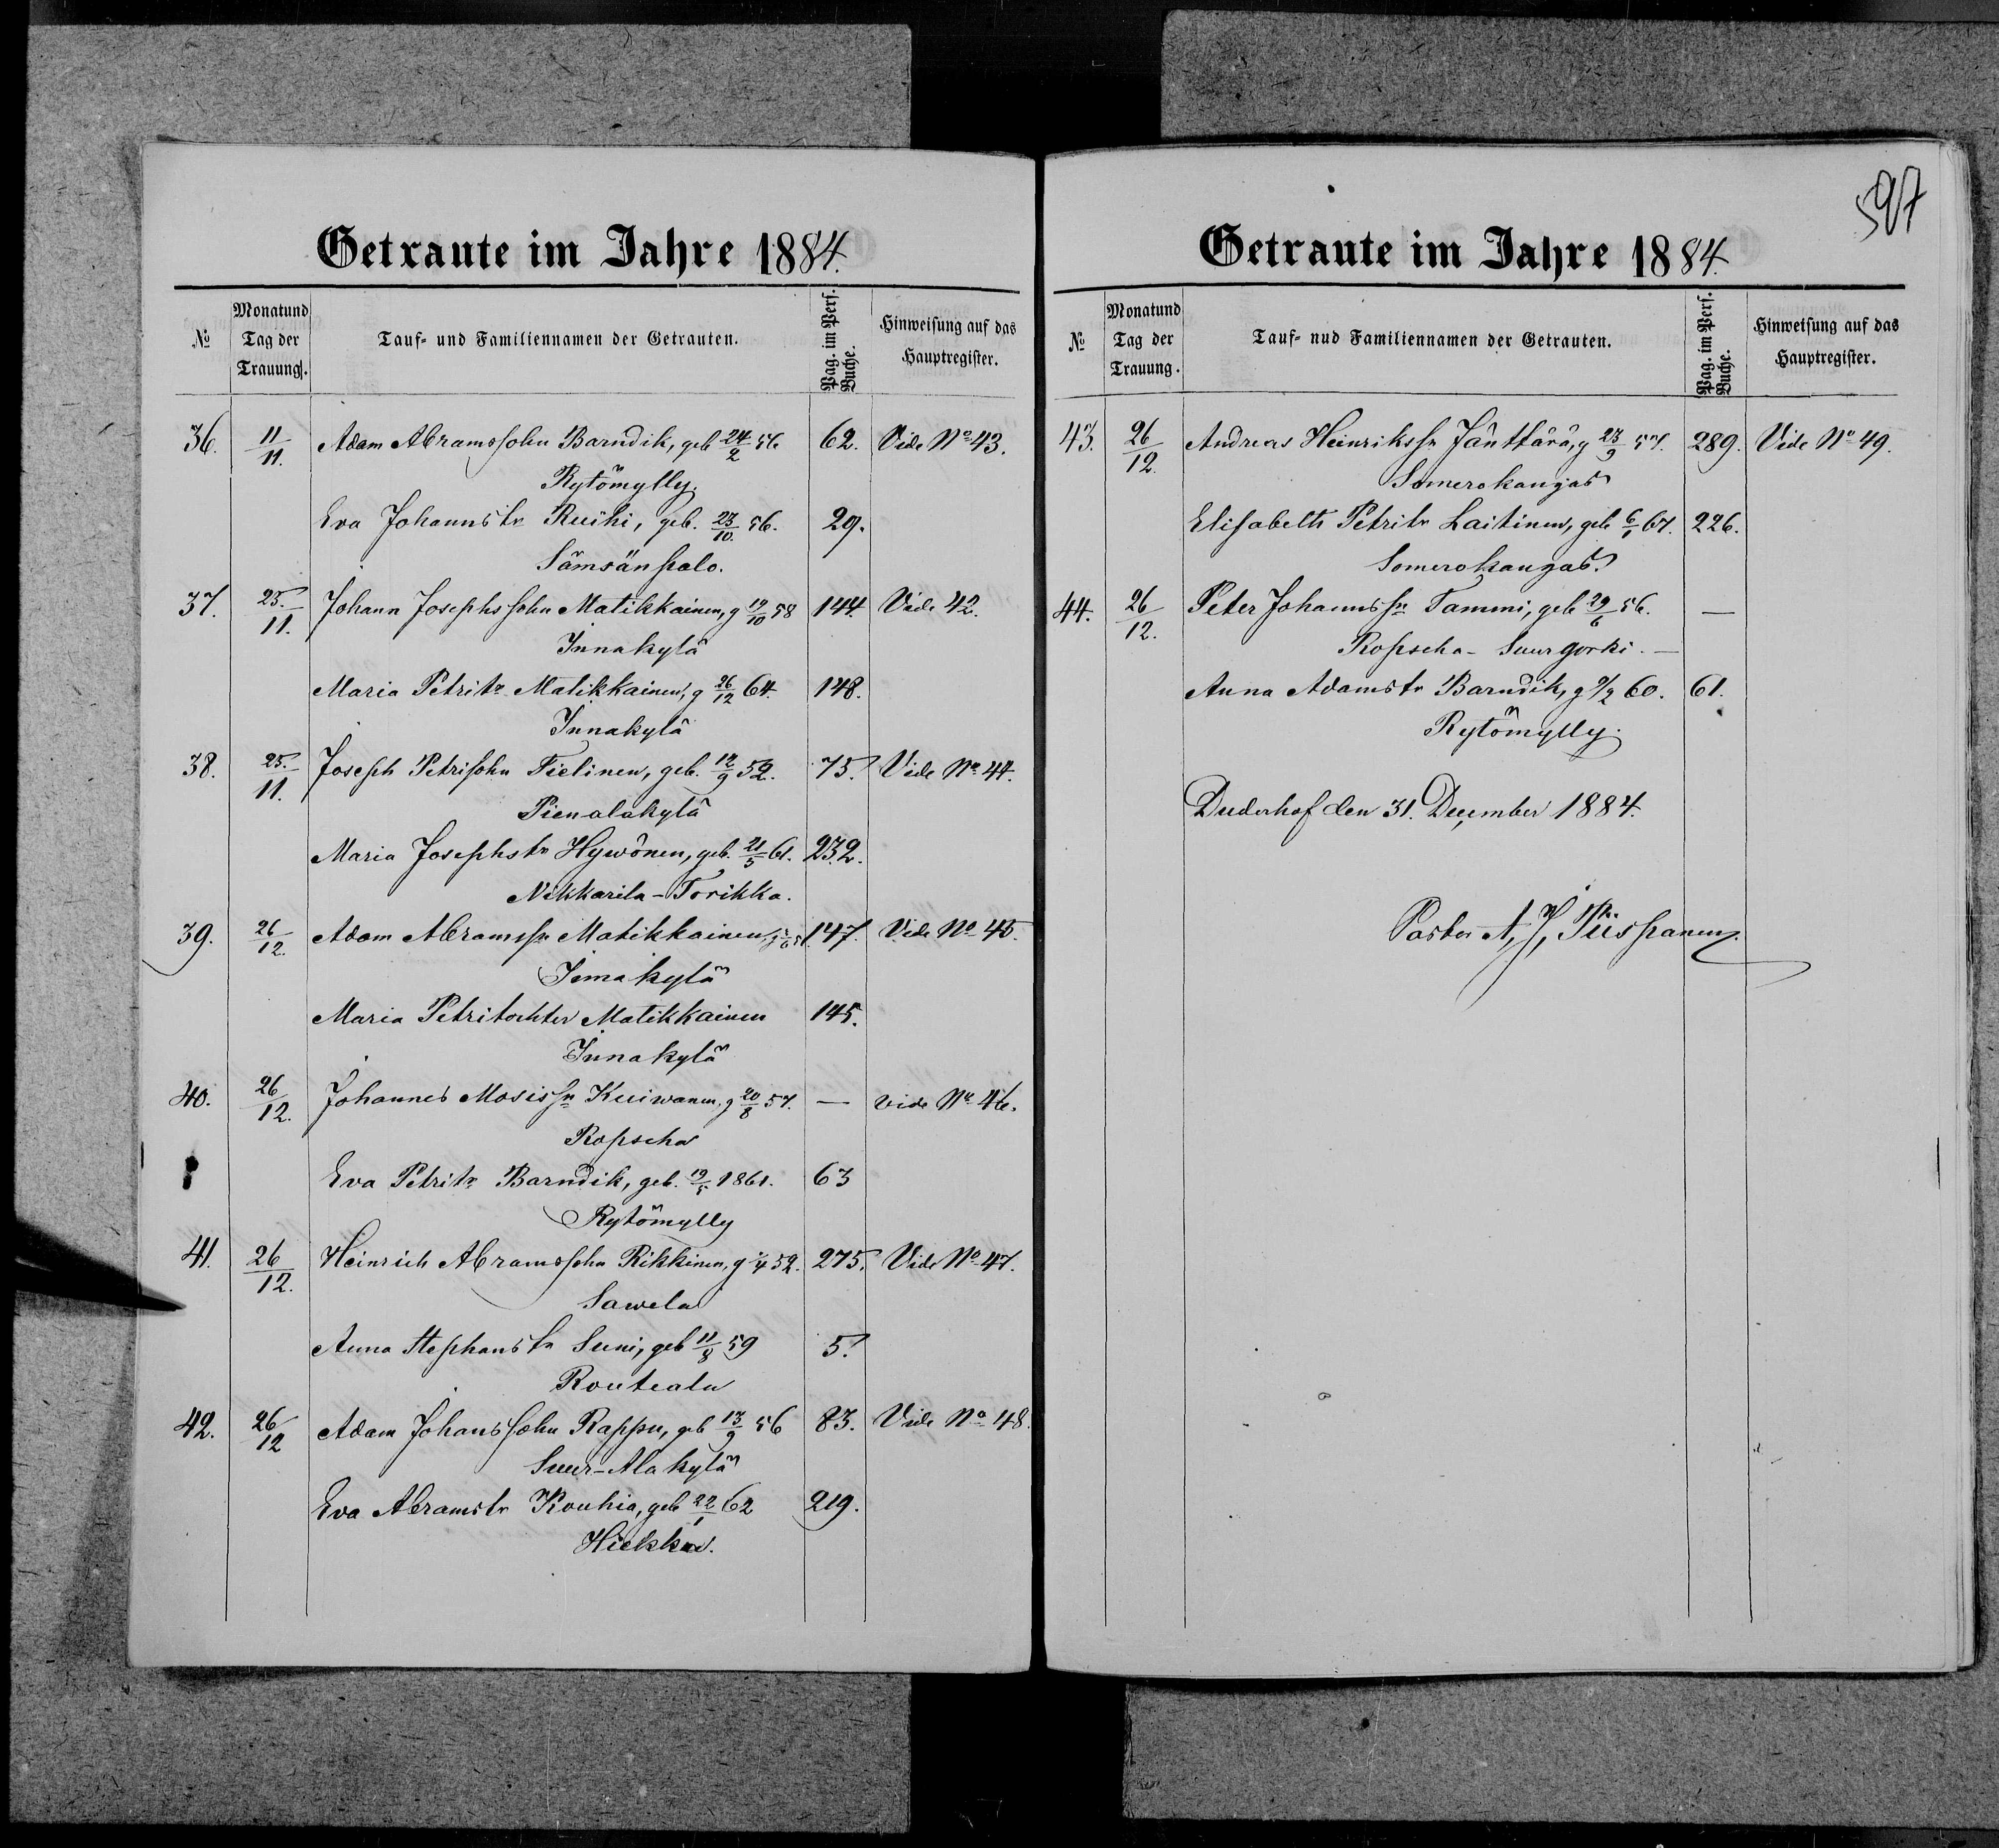 Getraute im Jahre 1884.
№ Monat und Tag der Trauung. Tauf- und Familiennamen der Getrauten. Pag. im Pers. Buche. Hinweisung auf das Hauptregister.
36. 11/11. Adam Abramssohn Barndik, geb 24/2 56 62. Vide No 43.
Rytömylly.
Eva Johannstr Ruihi, geb. 23/10. 56. 29.
Sämsänpalo.
37. 25./11. Johann Josephssohn Matikkainen, g 19/10 58 144. Vide 42.
Innakylä
Maria Petritr Matikkainen, g 26/12 64. 148.
Innakylä
38. 25./11. Joseph Petrisohn Tielinen, geb. 12/9 52. 75. Vide No 44.
Pienalakylä
Maria Josephstr Hywönen, geb. 21/5 61. 232.
Nikkarila-Torikka.
39. 26/12. Adam Abramssn Matikkainen, 147. Vide No 45.
Innakylä
Maria Petritochter Matikkainen 145.
Innakylä
40. 26/12. Johannes Mosissn Kuiwanen, g 20/8 57. — vide No 46.
Ropscha
Eva Petritr Barndik, geb. 19/5 1861. 63
Rytömylly
41. 26/12. Heinrich Abramssohn Rikkinen, g 52. 275. Vide No 47.
Sawela
Anna Stephanstr Suni, geb 11/8 59 5.
Routeala
42. 26/12 Adam Johanssohn Rappu, geb 13/9 56 83. Vide No 48.
Suur-Alakylä
Eva Abramstr Kouhia, geb 22/1 62 219.
Hiekka.
597
Getraute im Jahre 1884.
№ Monat und Tag der Trauung. Tauf- nud Familiennamen der Getrauten. Pag. im Pers. Buche. Hinweisung auf das Hauptregister.
43. 26/12. Andreas Heinrikssn Jänttärä, g 23/9 57. 289. Vide No 49.
Somerokangas
Elisabeth Petritr Laitinen, geb 6/1 67. 226.
Somerokangas.
44. 26/12. Peter Johannssn Tammi, geb 29/6 56. —
Ropscha- Suurgorki. —
Anna Adamstr Barndik, g 9/2 60. 61.
Rytömylly.
Duderhof den 31. December 1884.
Pastor A. J. Piispanen.